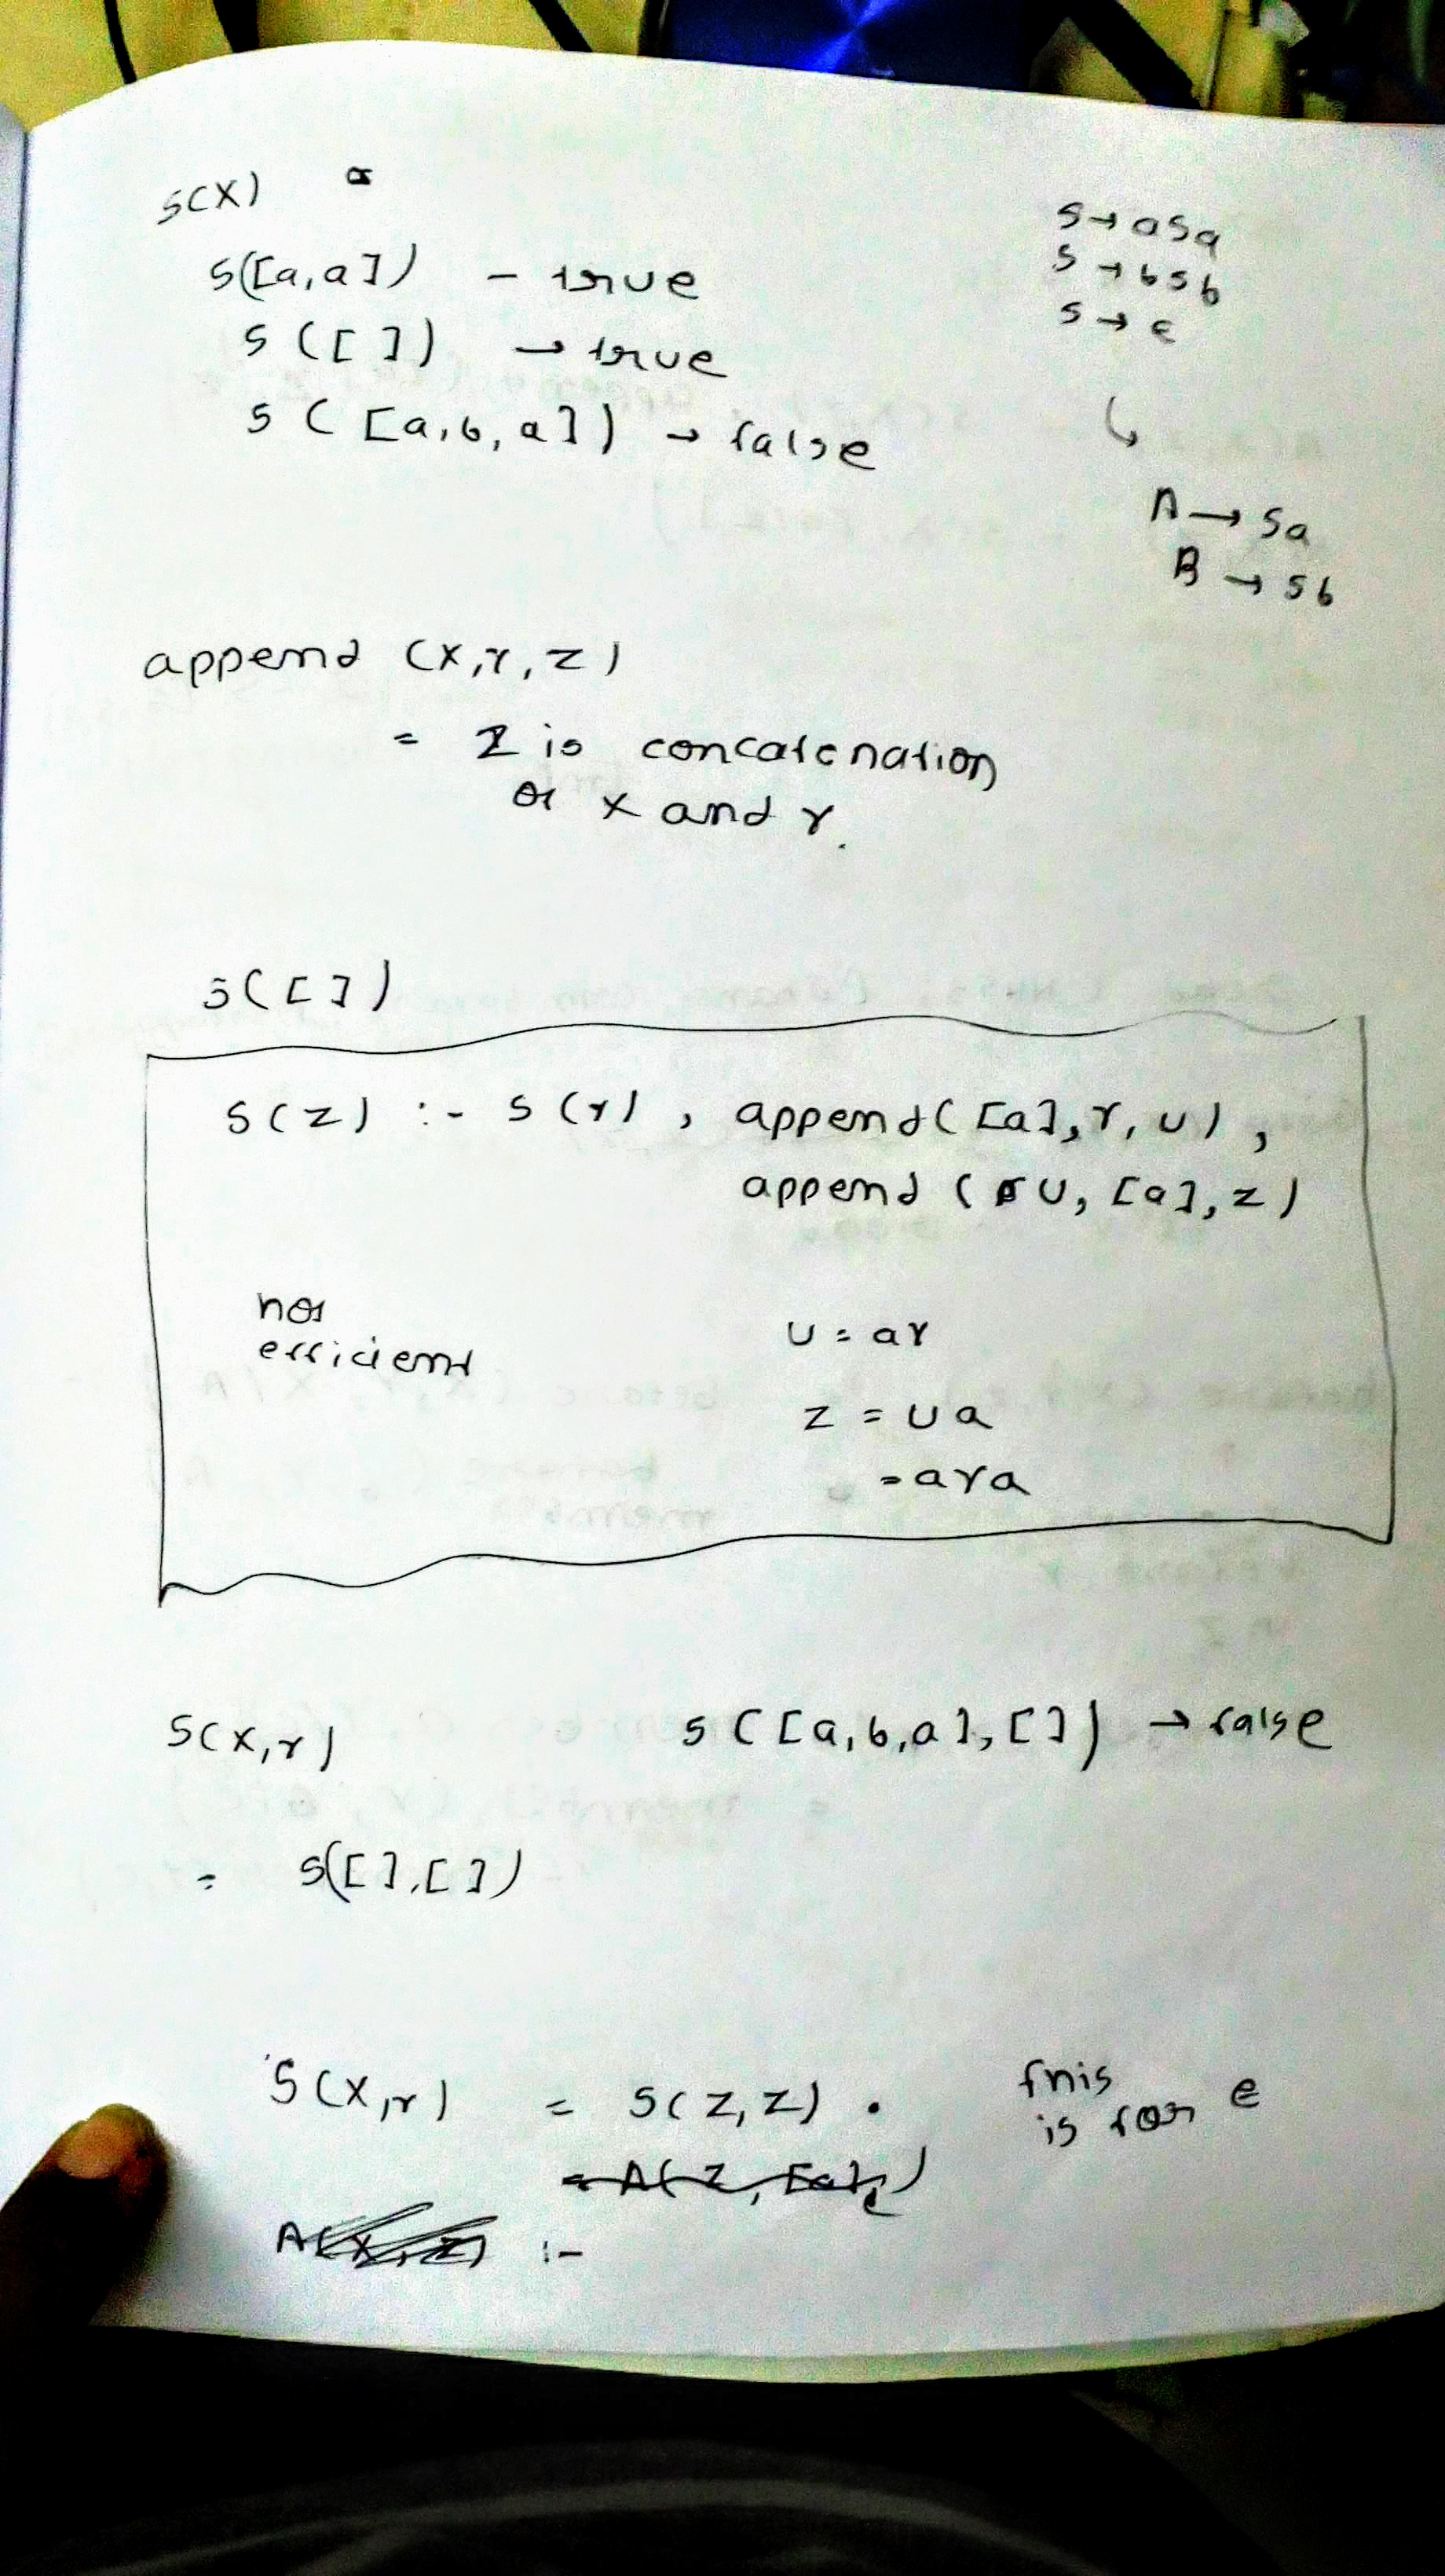 S(X)
S([a,a]) - true
S([]) → true
S([a,b,a]) → false
S → aSa
S → bSb
S → ε
A → Sa
B → Sb
append (X,Y,Z)
= Z is concatenation
of X and Y.
S([])
S(Z) :- S(Y), append([a],Y,U),
append (U,[a],Z)
not
efficient
U = aY
Z = Ua
= aYa
S(X,Y)
S([a,b,a],[]) → false
= S([],[])
S(X,Y) = S(Z,Z).
this
is for e
:-